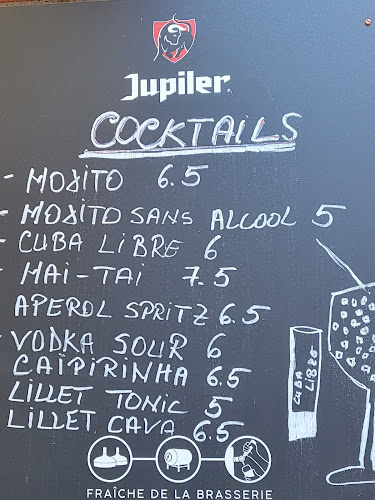 Jupiler
COCKTAILS
- MOJITO 6.5
- MOJITO SANS ALCOOL 5
- CUBA LIBRE 6
- MAI-TAI 7.5
APEROL SPRITZ 6.5
- VODKA SOUR 6
CAÏPIRINHA 6.5
LILLET TONIC 5
LILLET CAVA 6.5
CUBA
LIBRE
FRAÎCHE DE LA BRASSERIE